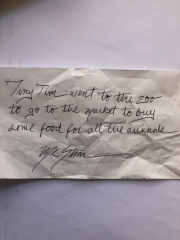 Tiny Tim went to the zoo
to go to the market to buy
some food for all the